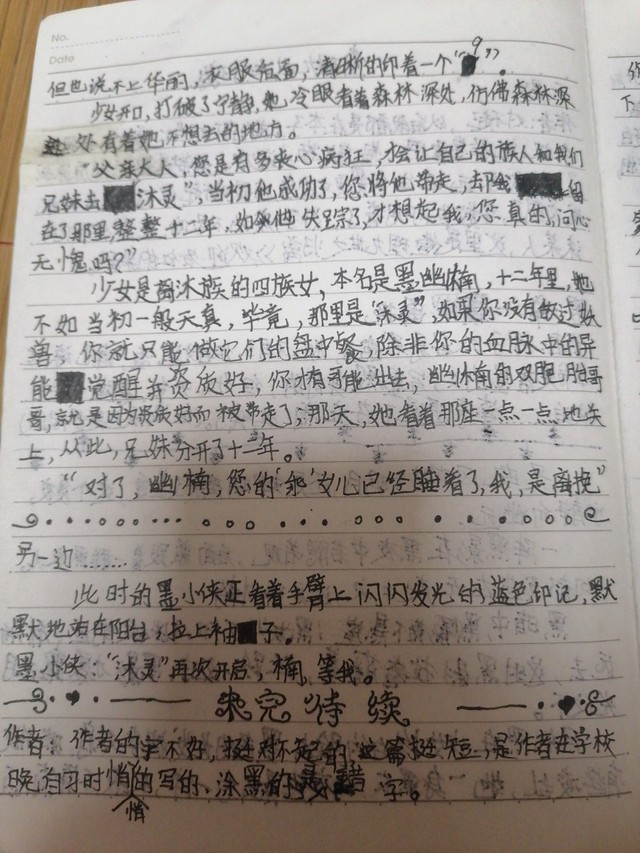 No.
Date
但也说不上华丽，衣服后面，清晰的印着一个“9”，
少女开口，打破了宁静，她，冷眼看着森林深处，仿佛森林深
处有着她不想去的地方。
“父亲大人，您是有多丧心病狂，才会让自己的族人和我们
兄妹去沐灵”，当初他成功了，您将他带走，却我留
在了那里，整整十二年，如今他失踪了，才想起我，您真的，问心
无愧吗？”
少女是离沐族的四族女，本名是墨幽楠，十二年里，她
不如当初一般天真，毕竟，那里是“沐灵”，如果你没有敌过妖
兽，你就只能做它们的盘中餐，除非你的血脉中的异
能觉醒并资质好，你才有可能出去，幽楠的双胞胎哥
哥，就是因为资质好而被带走了；那天，她看着那座一点一点地关
上，从此，兄妹分开了十二年。
“对了，幽楠，您的‘乖’女儿已经睡着了，我，是离挽”
另一边……
此时的墨小侠正看着手臂上闪闪发光的蓝色印记，默
默地站在阳台，拉上袖子。
墨小侠：“沐灵”再次开启，楠，等我。
未完待续
作者：作者的字不好，挺对不起的，这篇挺短，是作者在学校
晚自习时悄悄的写的、涂黑的是错字。